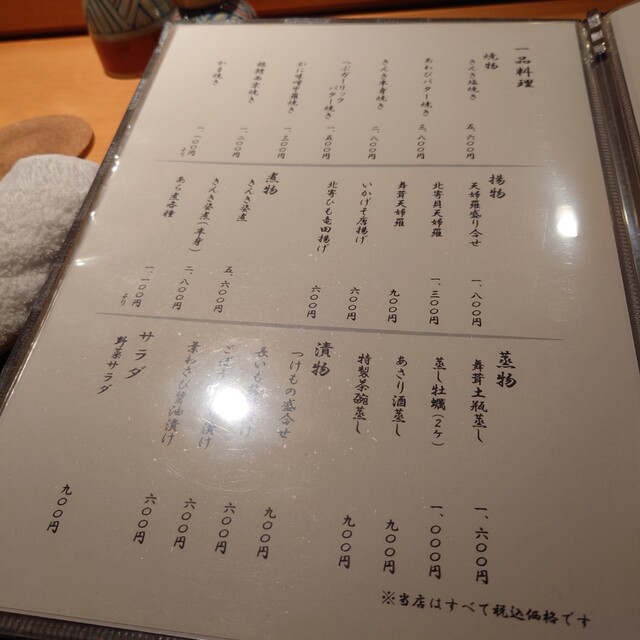 一品料理
焼物
きんき塩焼き 五、六〇〇円
あわびバター焼き 三、八〇〇円
きんき半身焼き 二、八〇〇円
つぶガーリック
バター焼き 一、五〇〇円
かに味噌甲羅焼き 一、三〇〇円
西京焼き 一、三〇〇円
かま焼き 一、一〇〇円より
揚物
天婦羅盛り合せ 一、八〇〇円
北寄貝天婦羅 一、三〇〇円
舞茸天婦羅 九〇〇円
いかげそ唐揚げ 六〇〇円
北寄ひも竜田揚げ 六〇〇円
煮物
きんき姿煮 五、六〇〇円
きんき姿煮(半身) 二、八〇〇円
あら煮各種 一、一〇〇円より
蒸物
舞茸土瓶蒸し 一、六〇〇円
蒸し牡蠣(2ケ) 一、〇〇〇円
あさり酒蒸し 九〇〇円
特製茶碗蒸し 九〇〇円
漬物
つけもの盛合せ 九〇〇円
長いも 漬け 六〇〇円
漬け 六〇〇円
茎わさび醤油漬け 六〇〇円
サラダ
野菜サラダ 九〇〇円
※当店はすべて税込価格です